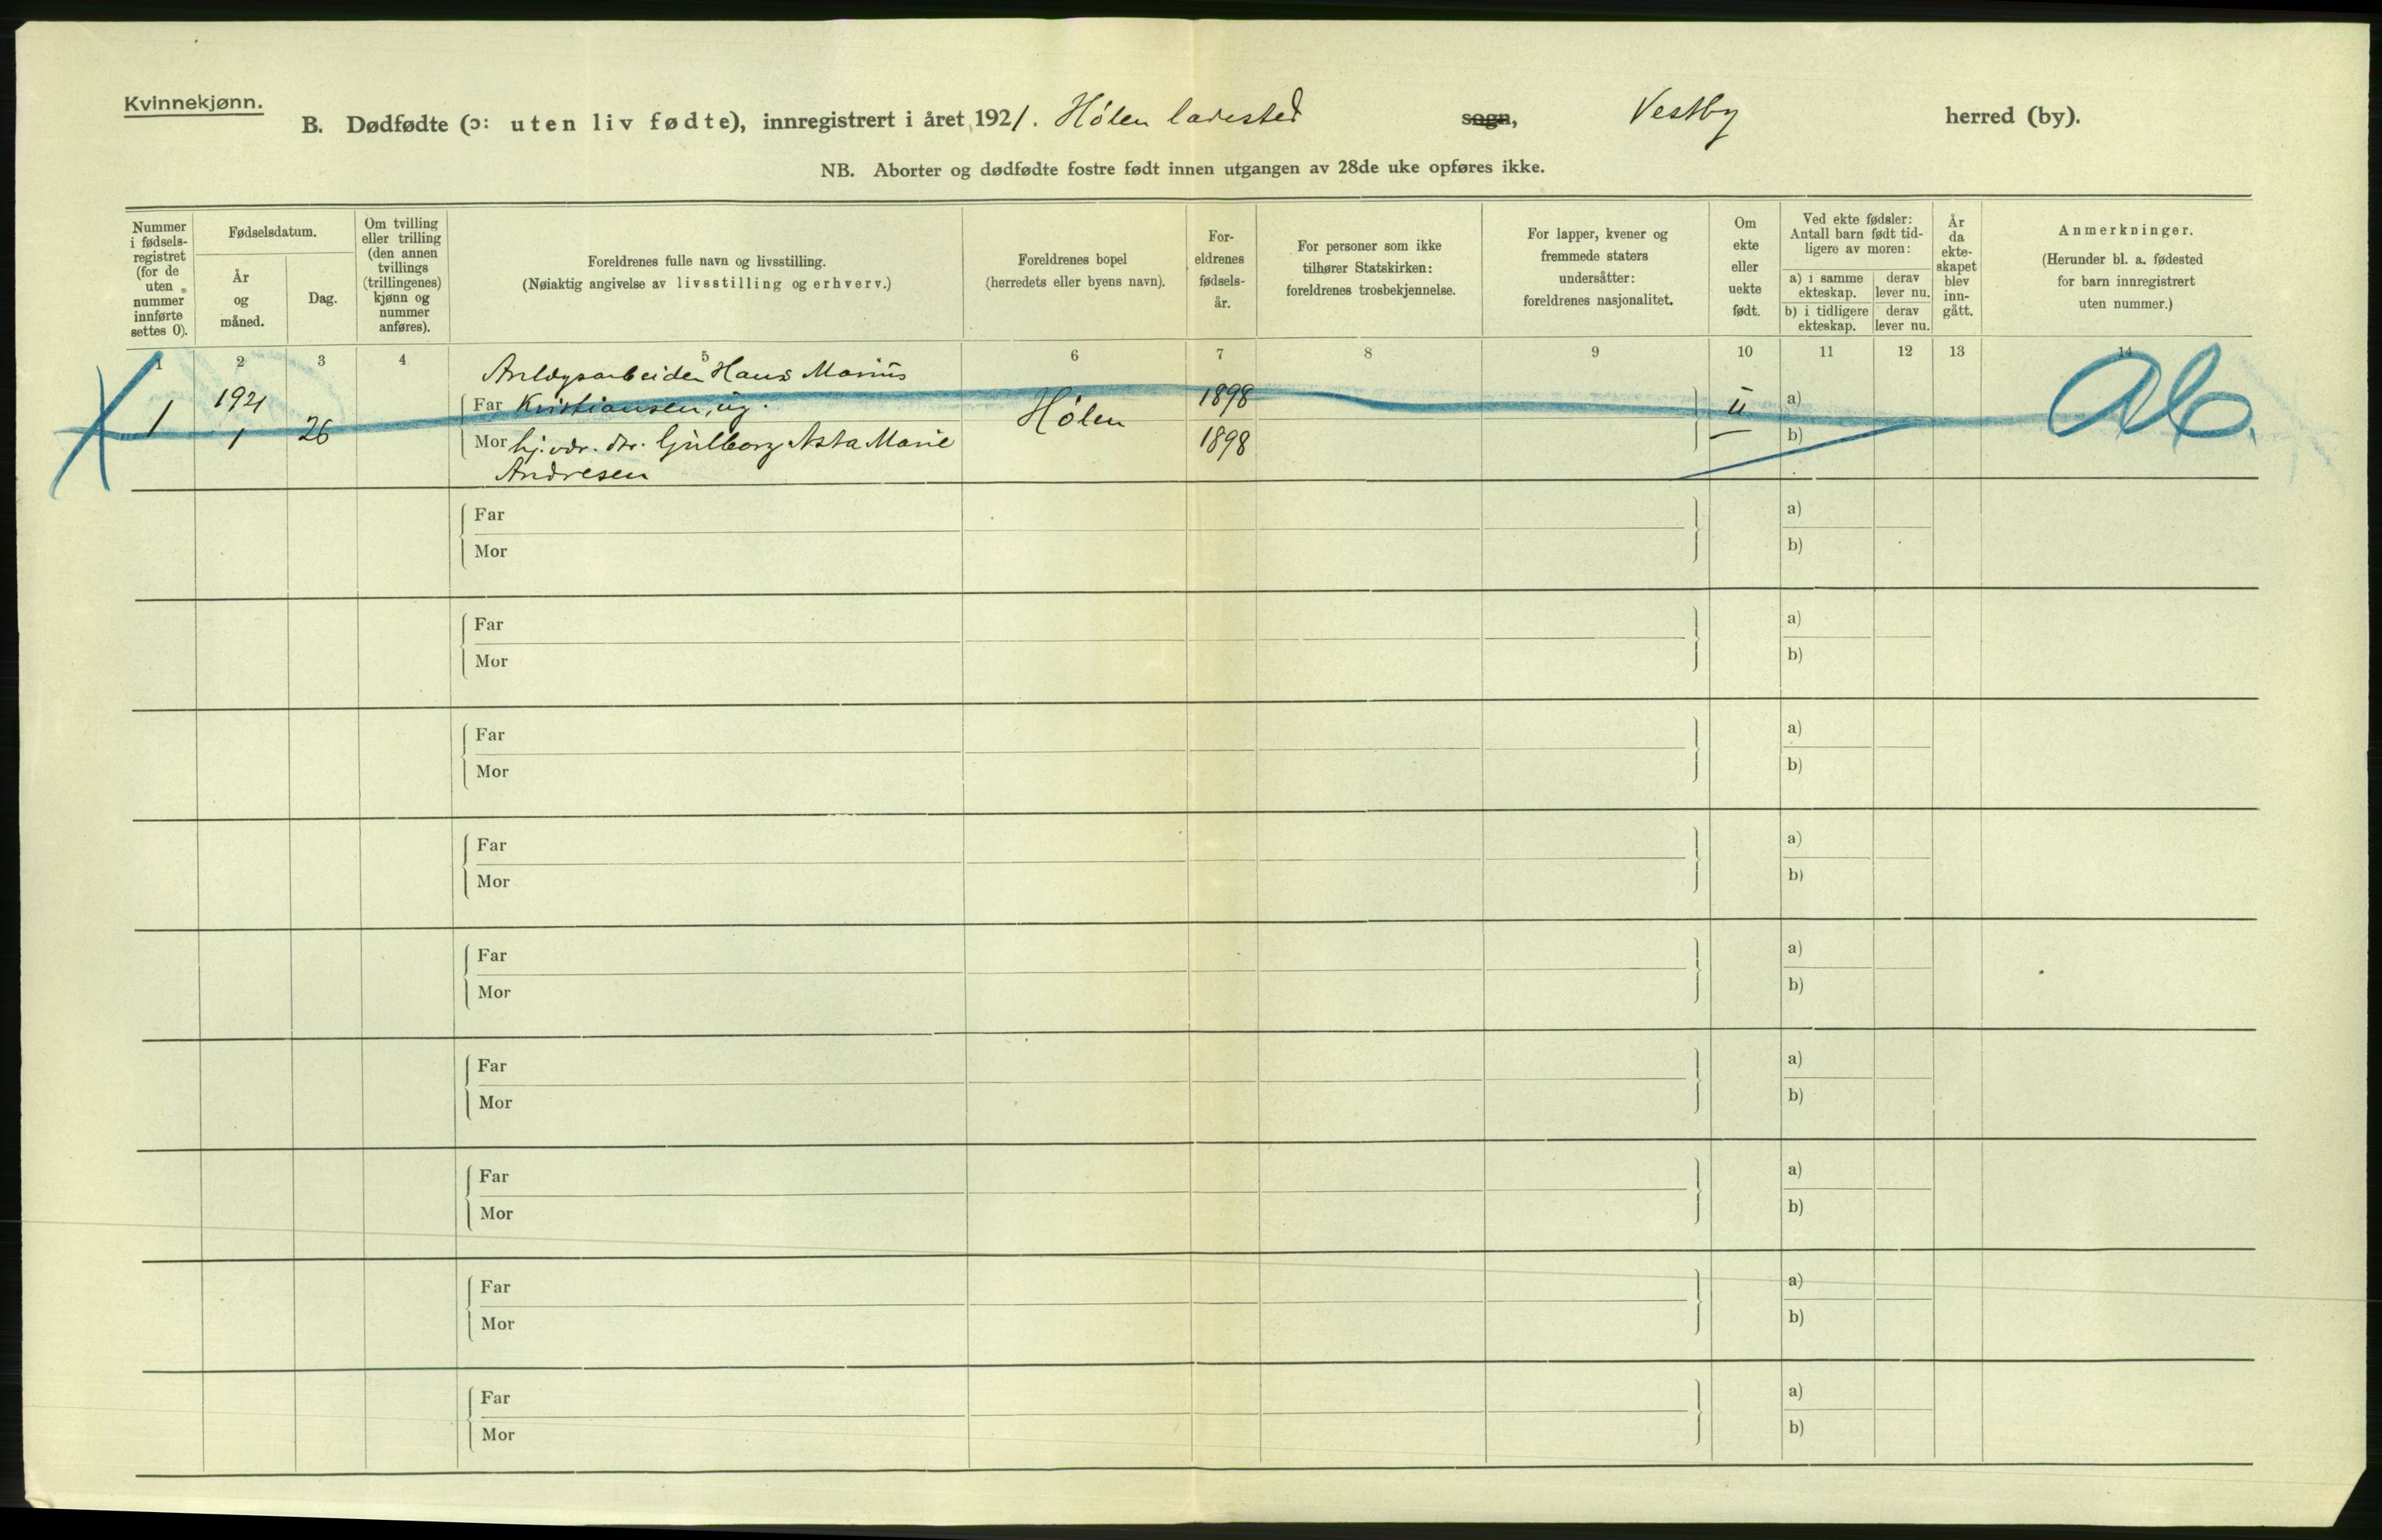 Kvinnekjønn.
B. Dødfødte (ɔ: uten liv fødte), innregistrert i året 1921. Hølen ladested sogn, Vestby herred (by).
NB. Aborter og dødfødte fostre født innen utgangen av 28de uke opføres ikke.
Nummer i fødsels- registret (for de uten nummer innførte settes 0).
Fødselsdatum.
År og måned.
Dag.
Om tvilling eller trilling (den annen tvillings (trillingenes) kjønn og nummer anføres).
Foreldrenes fulle navn og livsstilling.
(Nøiaktig angivelse av livsstilling og erhverv.)
Foreldrenes bopel
(herredets eller byens navn).
For- eldrenes fødsels- år.
For personer som ikke tilhører Statskirken: foreldrenes trosbekjennelse.
For lapper, kvener og fremmede staters undersåtter: foreldrenes nasjonalitet.
Om ekte eller uekte født.
Ved ekte fødsler: Antall barn født tid- ligere av moren:
a) i samme ekteskap. derav lever nu.
b) i tidligere ekteskap. derav lever nu.
År da ekte- skapet blev inn- gått.
Anmerkninger.
(Herunder bl. a. fødested for barn innregistrert uten nummer.)
1 2 3 4 5 6 7 8 9 10 11 12 13 14
Anlegsarbeider Hans Marius
1 1921 Far Kristiansen, ug. Hølen 1898 u a)
1 26 Mor hj.vær. dtr. Gulborg Asta Marie 1898 b)
Andresen
Far a)
Mor b)
Far a)
Mor b)
Far a)
Mor b)
Far a)
Mor b)
Far a)
Mor b)
Far a)
Mor b)
Far a)
Mor b)
Far a)
Mor b)
Far a)
Mor b)